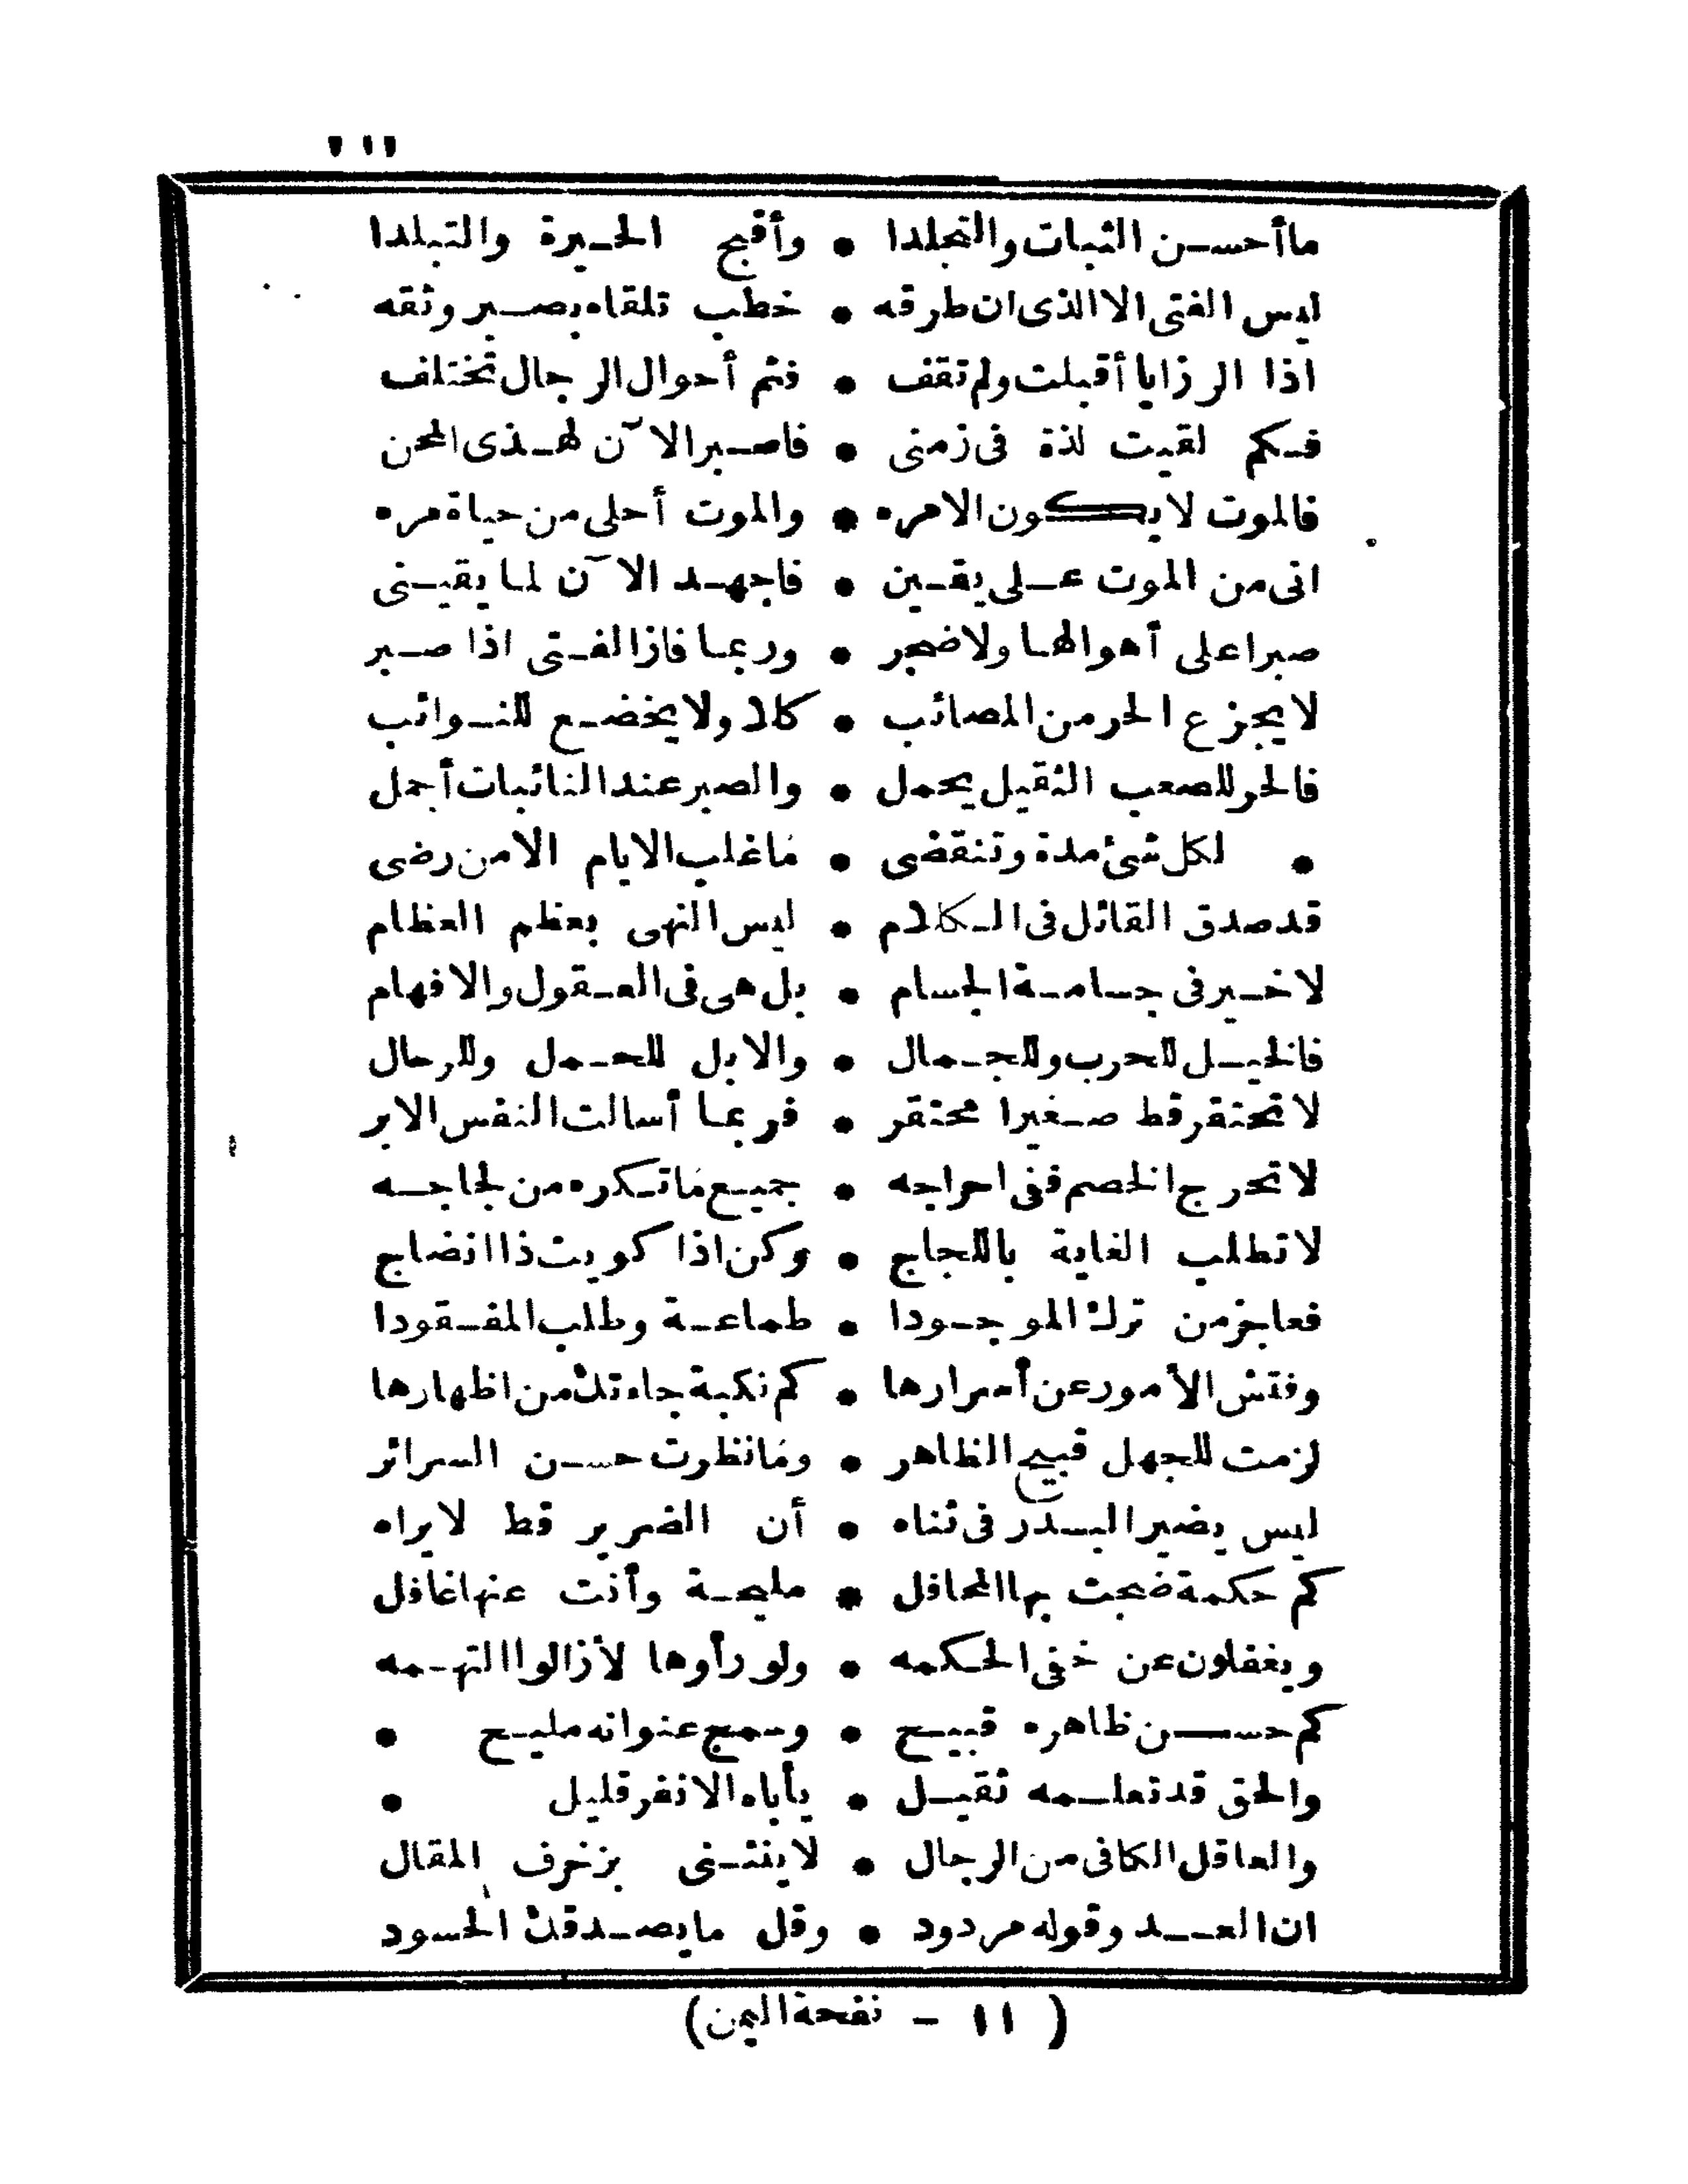 ما أحسن الثبات والتجلدا • وأقبح الحيرة والتبلدا
ليس الفتى الا الذى ان طرقه • خطب تلقاه بصبر وثقه
اذا الرزايا أقبلت ولم تقف • فثم أحوال الرجال تختلف
فكم لقيت لذة فى زمنى • فاصبر الآن لهذى المحن
فالموت لا يكون الا مره • والموت أحلى من حياة مره
انى من الموت على يقين • فاجهد الآن لما يقينى
صبرا على أهوالها ولا ضجر • وربما فاز الفتى اذا صبر
لا يجزع الحر من المصائب • كلا ولا يخضع للنوائب
فالحر للصعب الثقيل يحمل • والصبر عند النائبات أجمل
• لكل شئ مدة وتنقضى • ما غلب الايام الا من رضى
قد صدق القائل فى الكلام • ليس النهى بعظم العظام
لا خير فى جسامة الجسام • بل هى فى العقول والافهام
فالخيل للحرب وللجمال • والابل للحمل وللرحال
لا تحتقر قط صغيرا محتقر • فربما أسالت النفس الابر
لا تحرج الخصم ففى احراجه • جميع ما تكره من لجاجه
لا تطلب الغاية باللجاج • وكن اذا كويت ذا انضاج
فعاجز من ترك الموجودا • طماعة وطلب المفقودا
وفتش الأمور عن أسرارها • كم نكبة جاءتك من اظهارها
لزمت للجهل قبيح الظاهر • وما نظرت حسن السرائر
ليس يضير البدر فى ثناه • أن الضرير قط لا يراه
كم حكمة ضجت بها المحافل • مليحة وأنت عنها غافل
ويغفلون عن خفى الحكمه • ولو رأوها لأزالوا التهمه
كم حسن ظاهره قبيح • وسمج عنوانه مليح •
والحق قد تعلمه ثقيل • يأباه الا نفر قليل •
والعاقل الكافى من الرجال • لا ينثنى بزخرف المقال
ان العد وقوله مردود • وقل ما يصدقك الحسود
( ١١ - نفحة اليمن)